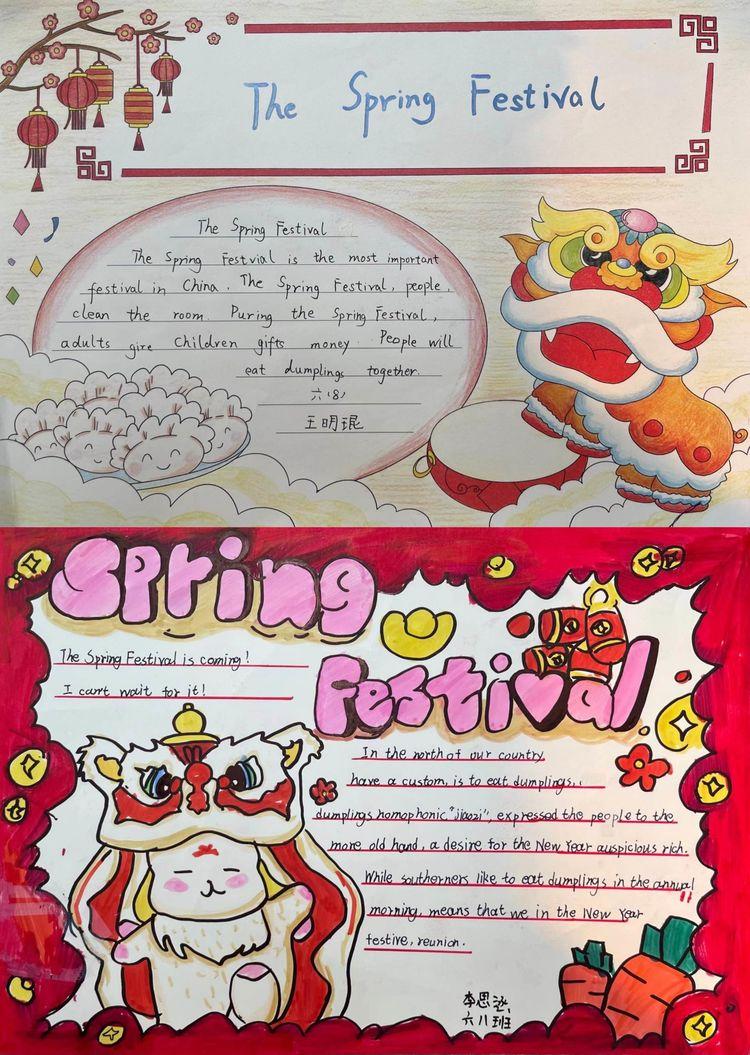 The Spring Festival
The Spring Festival
The Spring Festvial is the most important
festival in China. The Spring Festival, people.
clean the room. Puring the Spring Festival,
adults gire Children gifts money. People will
eat dumplings together.
六(8)
王明琨
Spring
Festival
The Spring Festival is coming!
I can't wait for it!
In the north of our country,
have a custom, is to eat dumplings,
dumplings homophonic "jiaozi", expressed the people to the
more old hand, a desire for the New Year auspicious rich.
While southerners like to eat dumplings in the annual
morning, means that we in the New Year
festive, reunion.
李思
六八班